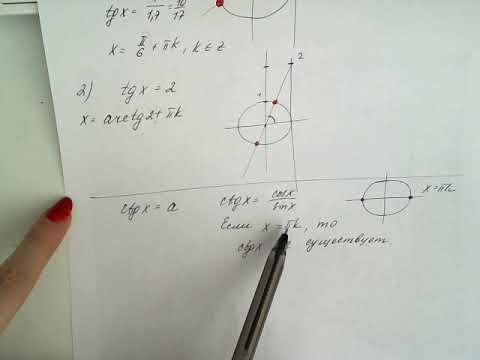 tg x = 1/1,7 = 10/17
x = π/6 + πk, k ∈ z
2) tg x = 2
x = arctg 2 + πk
2
1
ctg x = a
ctg x = cos x / sin x
x = πk
Если x = πk, то
ctg x существует